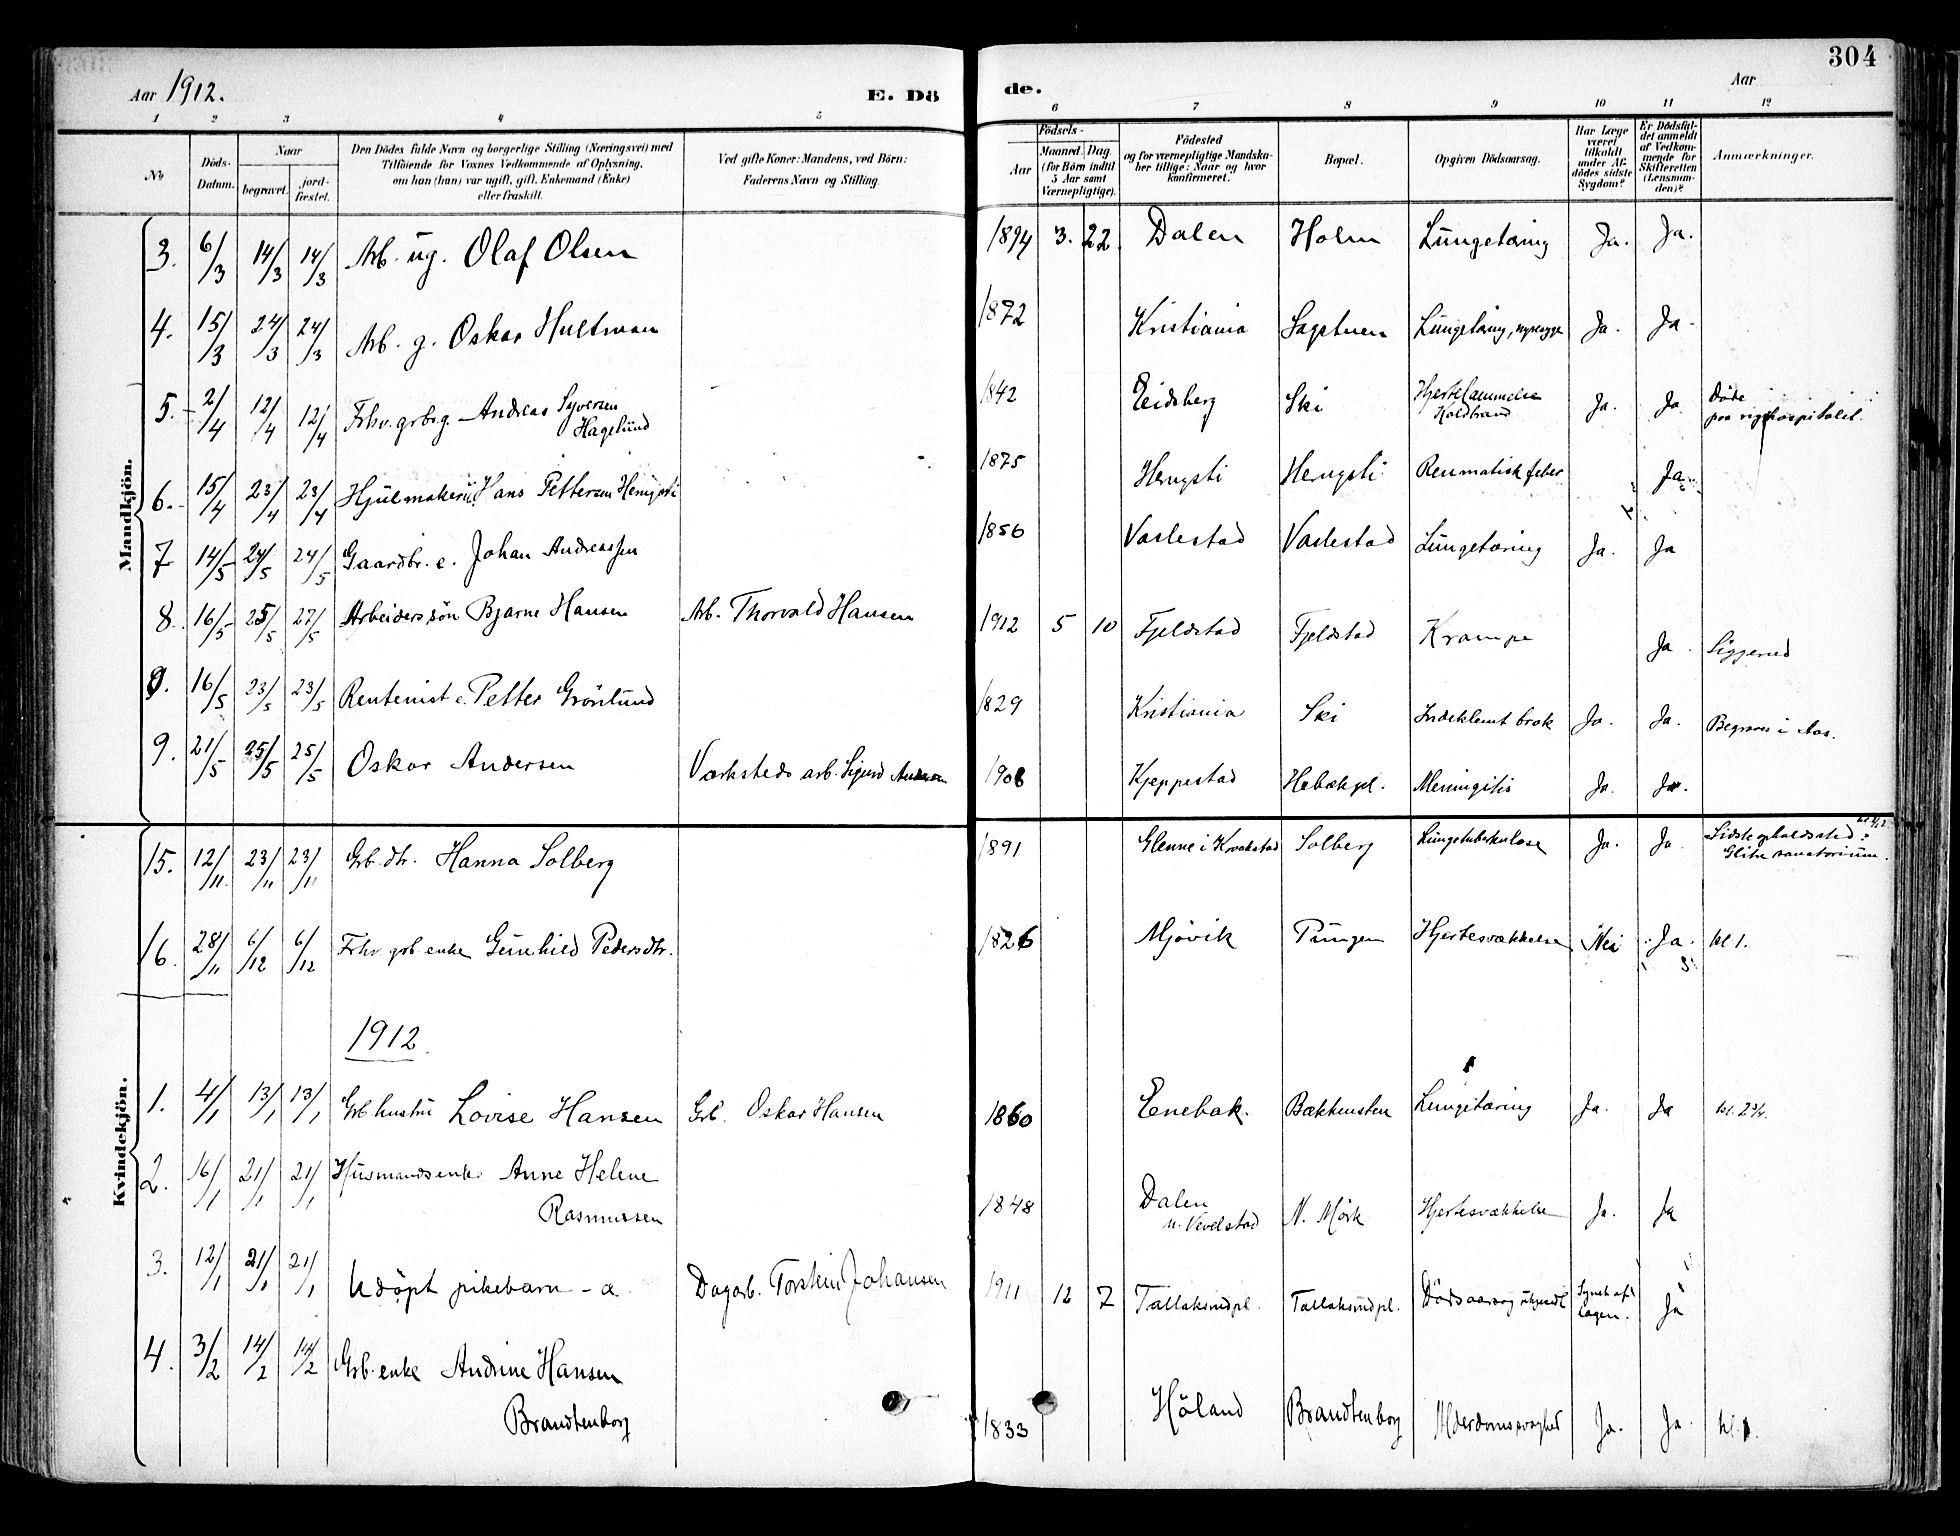 304
Aar 1912.
E. Dö
de.
Aar
1 2 3 4 5 6 7 8 9 10 11 12
No
Döds-Datum.
Naar
begravet.
jord-fæstet.
Den Dödes fulde Navn og borgerlige Stilling (Næringsvei) med
Tilföiende for Voxnes Vedkommende af Oplysning,
om han (hun) var ugift, gift, Enkemand (Enke)
eller fraskilt.
Ved gifte Koner: Mandens, ved Börn:
Faderens Navn og Stilling.
Födsels-
Aar
Maaned. Dag.
(for Börn indtil
5 Aar samt
Værnepligtige).
Födested
og for værnepligtige Mandska-
ber tillige: Naar og hvor
konfirmeret.
Bopæl.
Opgiven Dödsaarsag.
Har Læge
været
tilkaldt
under Af-
dödes sidste
Sygdom?
Er Dödsfal-
det anmeldt
af Vedkom-
mende for
Skifteretten
(Lensman-
den)?
Anmærkninger.
Mandkjön.
3. 6/3 14/3 14/3 Arb. ug. Olaf Olsen 1894 3. 22. Dalen Holm Lungetæring Ja. Ja.
4. 15/3 24/3 24/3 Arb. g. Oskar Hultman 1872 Kristiania Sagstuen Lungetæring, Ja. Ja.
5. 2/4 12/4 12/4 Fhv. grbr. g. Andreas Syversen
Hagelund 1842 Eidsberg Ski Hjertelammelse
Koldbrand Ja. Ja Döde
paa rigshospitalet.
6. 15/4 23/4 23/4 Hjulmaker Hans Pettersen Hengsti 1875 Hengsti Hengsti Reumatisk feber Ja.
7 14/5 24/5 24/5 Gaardbr. e. Johan Andreassen 1856 Vaslestad Vaslestad Lungetæring Ja. Ja
8. 16/5 25/5 27/5 Arbeiders sön Bjarne Hansen Arb. Thorvald Hansen 1912 5 10 Fjeldstad Fjeldstad Krampe Ja. Siggerud
9. 16/5 23/5 23/5 Rentenist e. Petter Grönlund 1829 Kristiania Ski Indeklemt brok Ja. Ja. Begraves i Aas.
9. 21/5 25/5 25/5 Oskar Andersen Værksteds arb. Sigurd Andersen 1908 Kjeppestad Hebækpl. Meningitis Ja. Ja.
Kvindekjön.
15. 12/11 23/11 23/11 Grb. dtr. Hanna Solberg 1891 Glenne i Kraakstad Solberg Lungetuberkulose Ja. Ja. Sidste opholdssted:
Glitre sanatorium.
16. 28/11 6/12 6/12 Fhv. grb enke Gunhild Pedersdtr. 1826 Mjövik Pungen Hjertesvækkelse Nei Ja. kl 1.
1912.
1. 4/1 13/1 13/1 Grb hustru Lovise Hansen Grb. Oskar Hansen 1860 Enebak. Bækkensten Lungetæring Ja. Ja
2. 16/1 21/1 21/1 Husmandsenke Anne Helene
Rasmussen 1848 Dalen
u. Vevelstad N. Mörk Hjertesvækkelse Ja. Ja
3. 12/1 21/1 21/1 Udöpt pikebarn - a. Dagarb. Torstein Johansen 1911 12 7 Tallaksrudpl. Tallaksrudpl. Dödsaarsag ukjendt Synet af
lægen. Ja
4. 3/2 14/2 14/2 Grb. enke Andrine Hansen
Brandtenborg 1833 Höland Brandtenborg Alderdomssvaghed Ja. Ja. kl. 1.